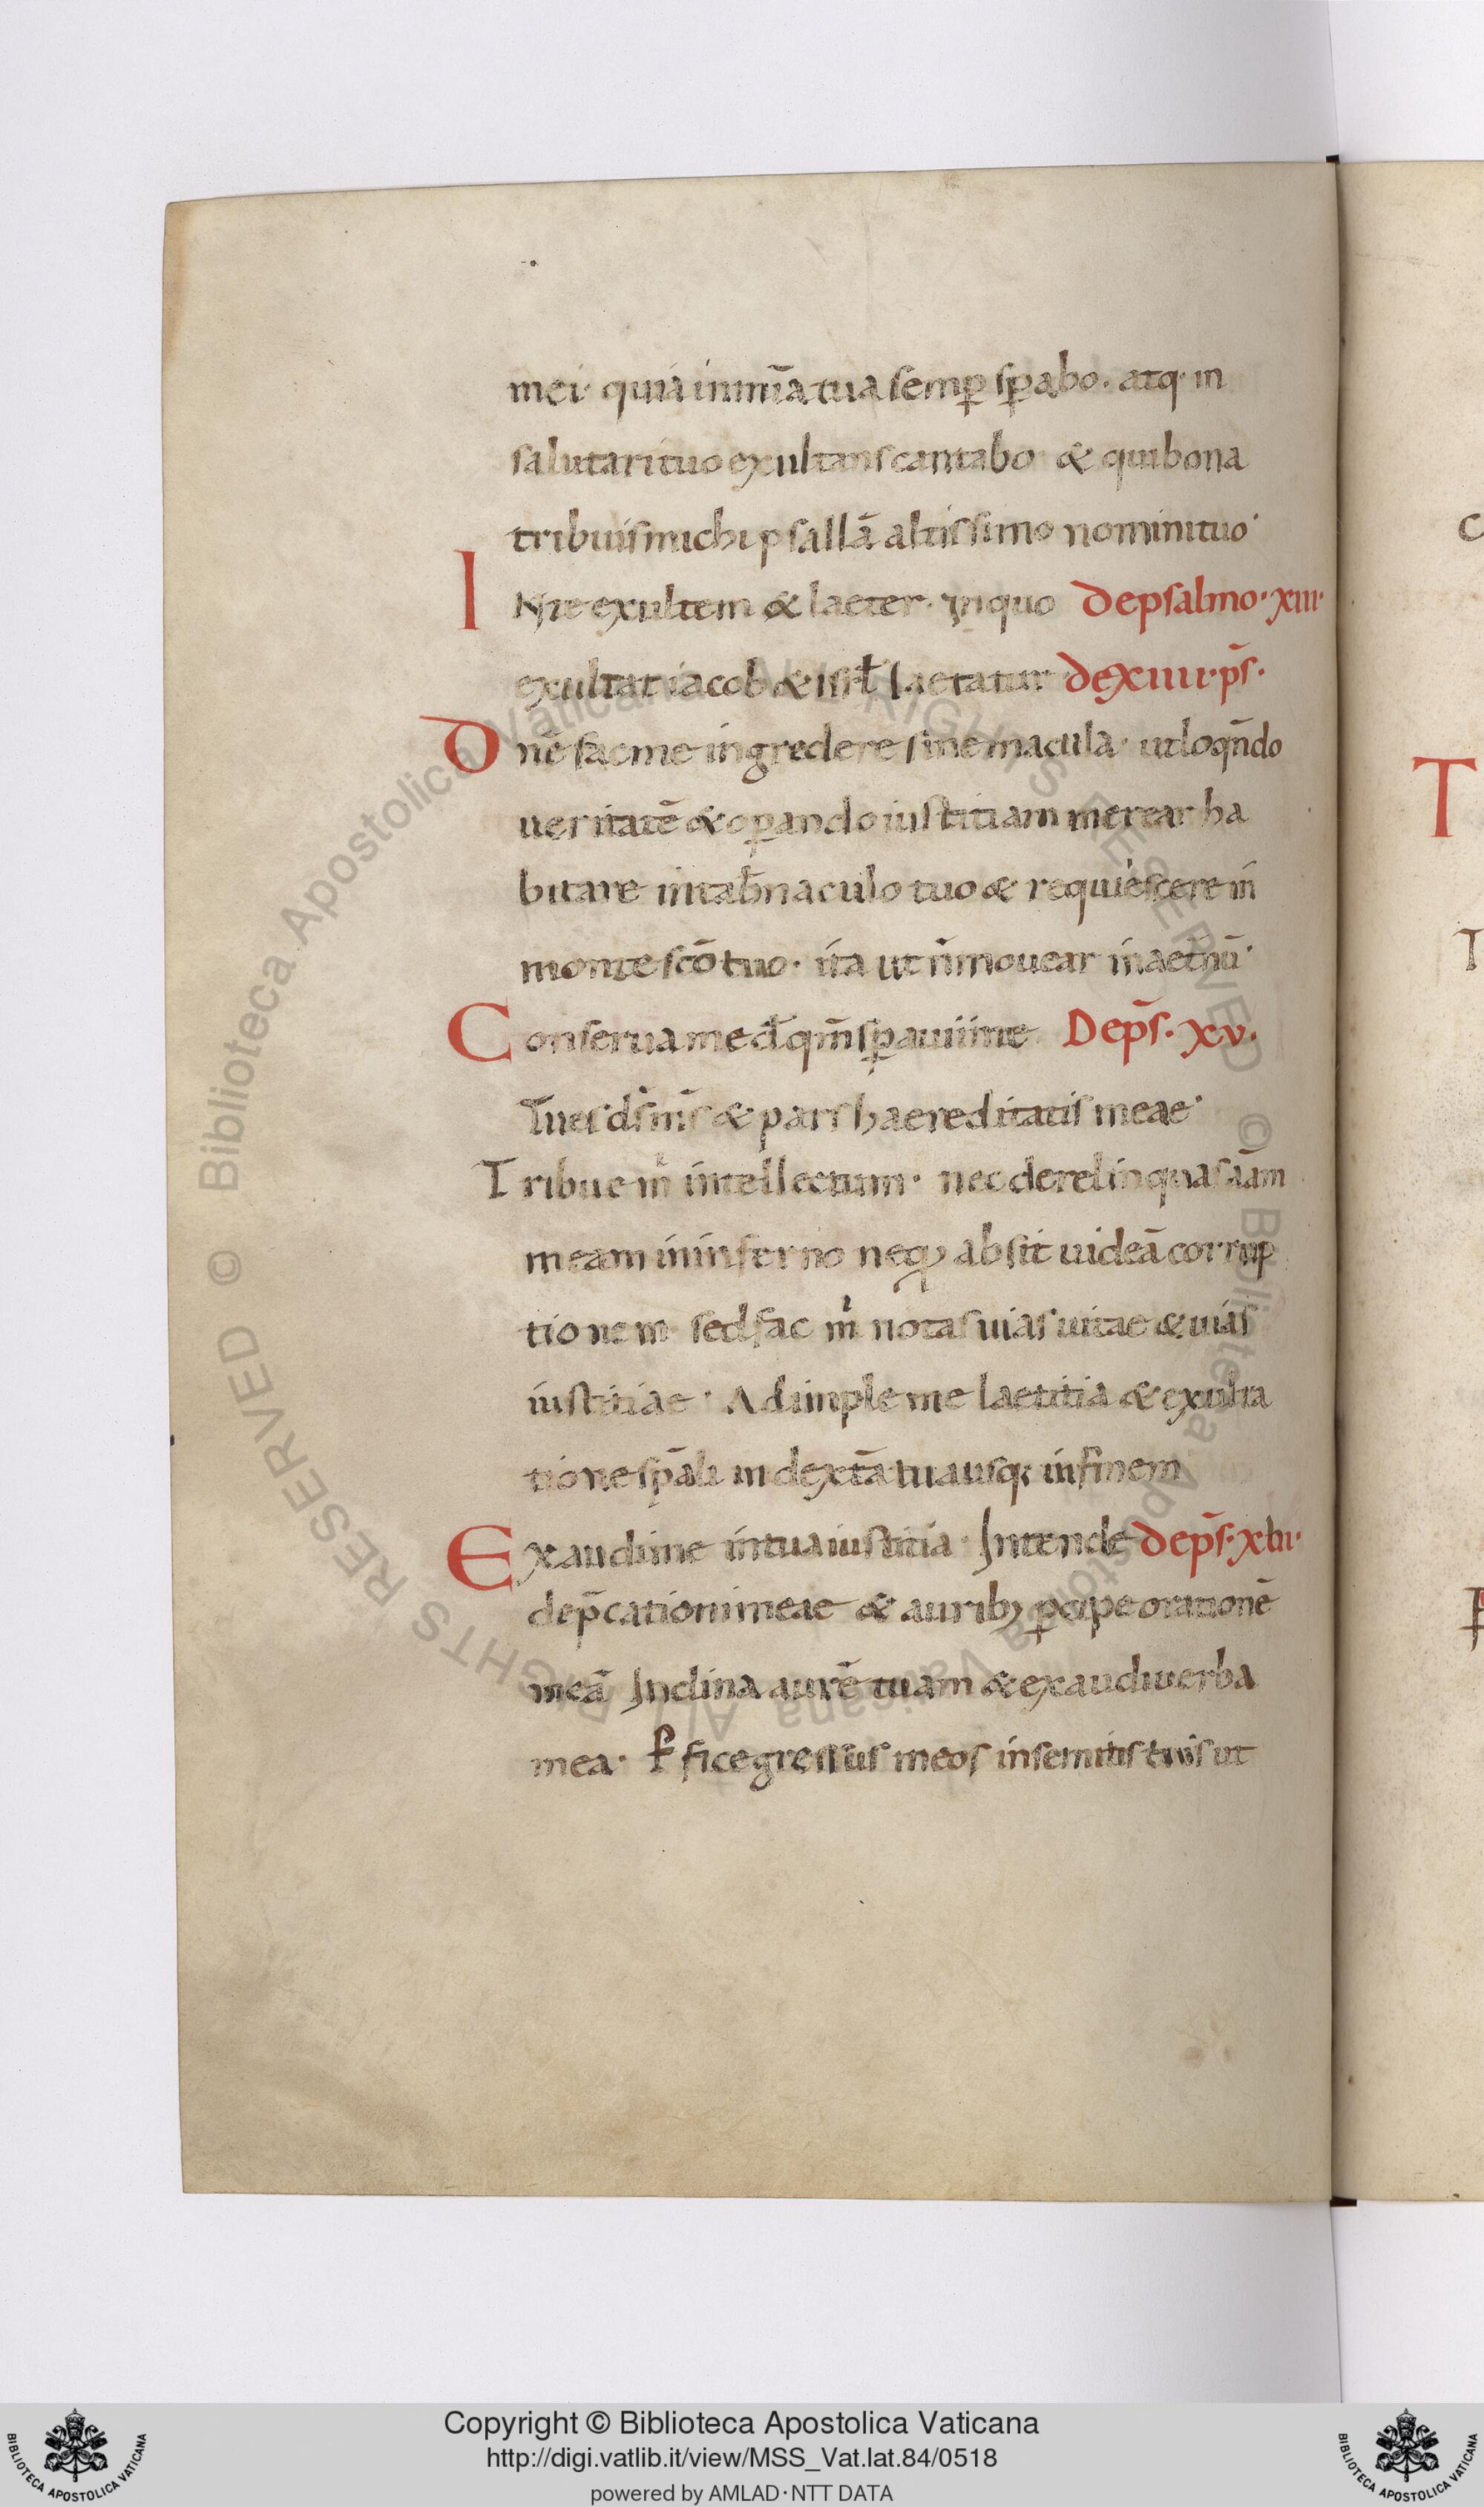 mei· quia in mīa tua semꝑ sꝑabo. atq· in
salutari tuo exultans cantabo· & qui bona
tribuis michi psallā altissimo nomini tuo·
IN te exultem & laeter. in quo De psalmo· xiii·
exultat iacob & isrł laetatur de xiiii· ps̄·
Dnē fac me ingredere sine macula· ut loqn̄do
ueritatē & oꝑando iustitiam merear ha
bitare in tab̄naculo tuo & requiescere in
monte scō tuo· ita ut n̄ mouear in aet̄nū·
Conserua me d̄s qm̄ sꝑaui in te De ps̄· xv·
Tu es dn̄s m̄s & pars haereditatis meae·
Tribue m̍ intellectum· nec derelinquas āam
meam in inferno neq; absit uideā corrup
tionem sed fac m̍ notas uias uitae & uias
iustitiae· Adimple me laetitia & exulta
tione sp̄ali in dext̄a tua usq; in finem
Exaudi me in tua iustitia· Intende de ps̄· xvi·
dep̄cationi meae & aurib; ꝑcipe orationē
meā Inclina aurē tuam & exaudi uerba
mea· ꝑfice gressus meos in semitis tuis ut
Copyright © Biblioteca Apostolica Vaticana
http://digi.vatlib.it/view/MSS_Vat.lat.84/0518
powered by AMLAD·NTT DATA